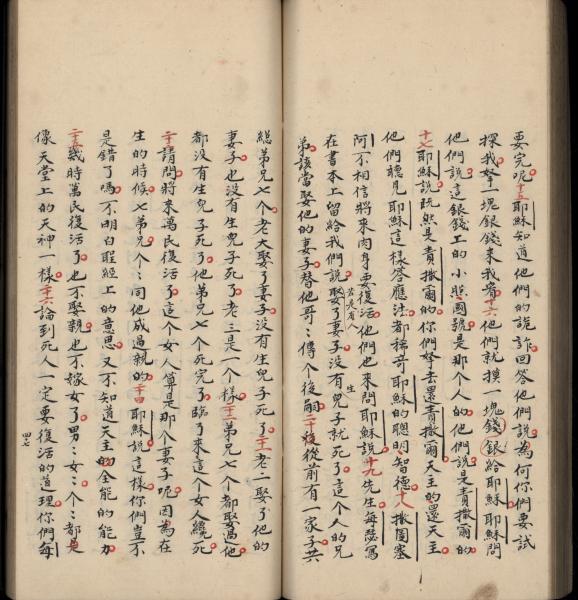 要完呢十五耶穌知道他們的詭詐回答他們說為何你們要試
探我拏一塊銀錢來我看十六他們就摸一塊錢銀給耶穌耶穌問
他們說這銀錢上的小照國號是那個人的他們說是責撒爾的
十七耶穌說既然是責撒爾的你們拏去還責撒爾天主的還天主
他們聽見耶穌這樣答應法都稱奇耶穌的聰明智德十八撒圖塞
阿不相信將來肉身要復活他們也來問耶穌說十九先生每瑟寫
在書本上留給我們說若是有人娶了妻子沒有生兒子就死了這個人的兄
弟該當娶他的妻子替他哥:傳個後嗣二十後從前有一家子共
總弟兄七個老大娶了妻子沒有生兒子死了二十一老二娶了他的
妻子也沒有生兒子死了老三是一個樣二十二弟兄七個都娶過他
都沒有生兒子死了他弟兄七個死完了臨了來這個女人纔死
二十三請問將來萬民復活了這個女人算是那個妻子呢因為在
生的時候七弟兄個:同他成過親的二十四耶穌說這樣你們豈不
是錯了嗎不明白聖經上的意思又不知道天主的全能的能力
二十五幾時萬民復活了也不娶親也不嫁女了男:女:個:都是
像天堂上的天神一樣二十六論到死人一定要復活的道理你們每
四七